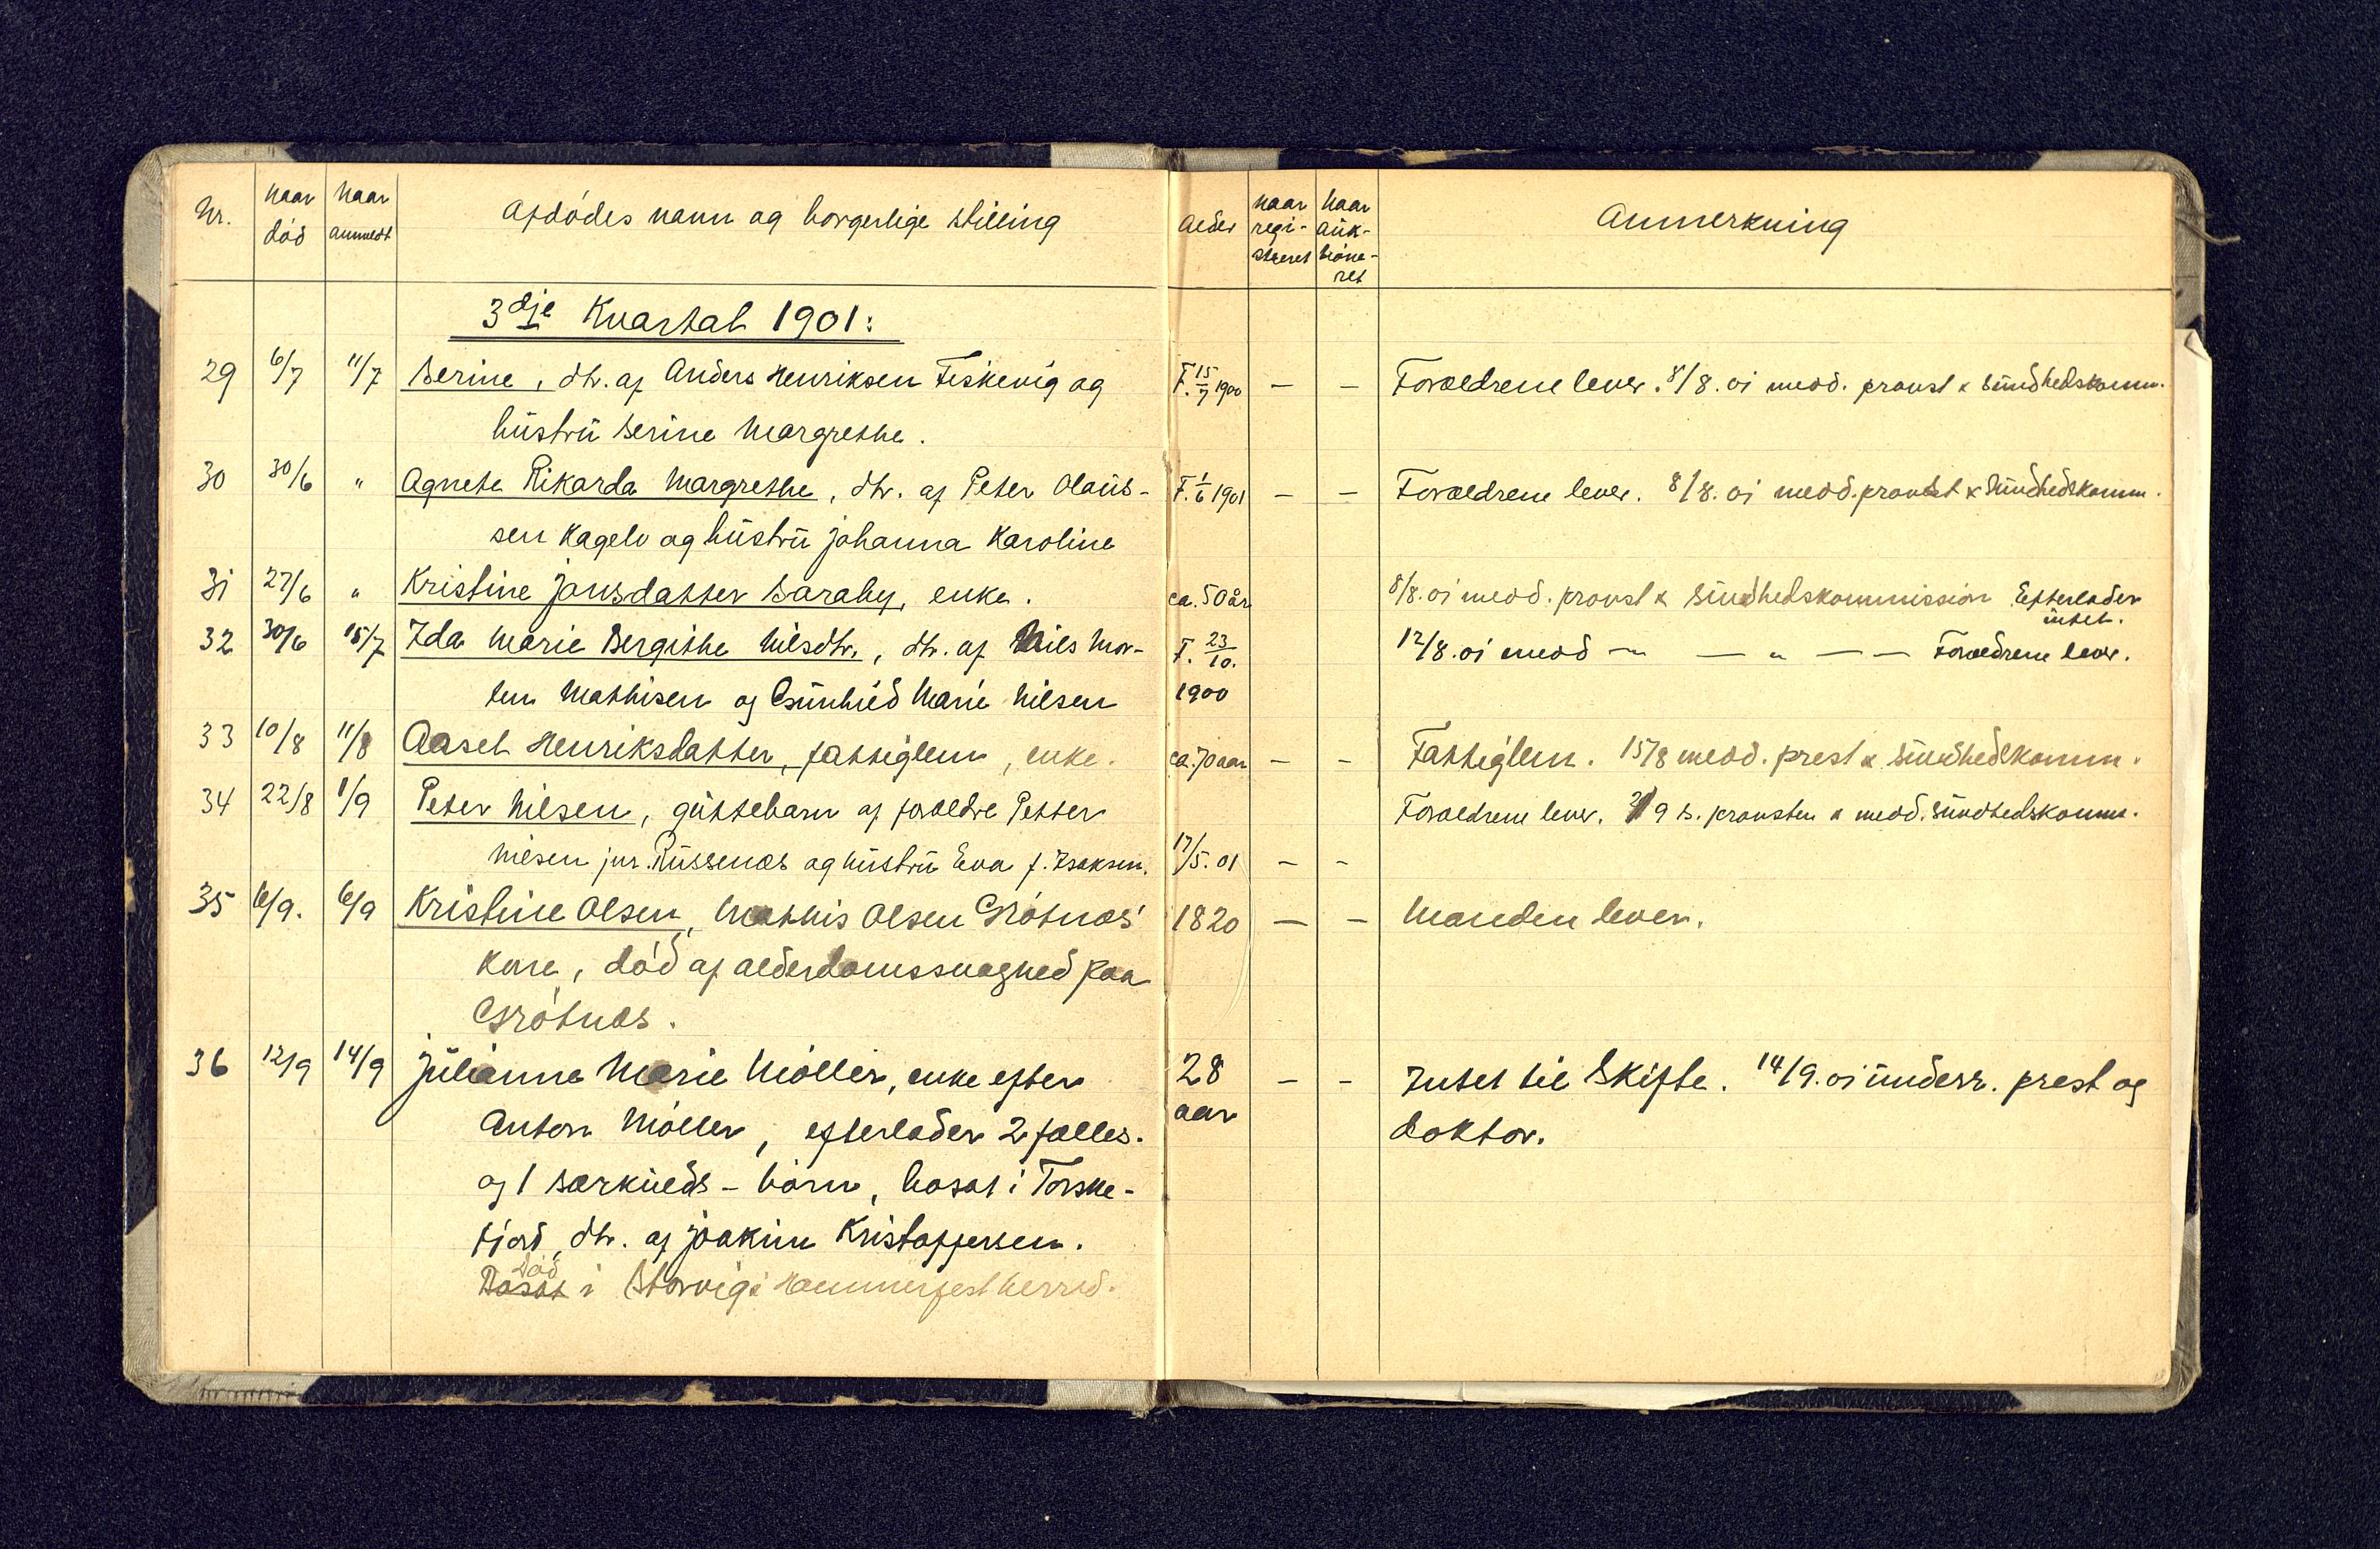 Nr. Naar Naar Afdødes navn og borgerlige stilling Alder naar naar Anmerkning
død anmeldt regi- auk-
streret tione-
ret
3dje Kvartal 1901:
29 6/7 11/7 Berine, dtr. af Anders Henriksen Fiskevig og F. 15/7 1900 — — Forældrene lever. 8/8. oi medd. provst & Sundhedskomm.
hustru Berine Margrethe.
30 30/6 " Agnete Rikarda Margrethe, dtr. af Peter Olaus- F. 1/6 1901 — — Forældrene lever. 8/8. oi medd. provst & Sundhedskomm.
sen Kagelv og hustru Johanna Karoline
31 27/6 " Kristine Jonsdatter Saraby, enke. ca. 50 år 8/8. oi medd. provst & Sundhedskommission Efterlader
intet.
32 30/6 15/7 Ida Marie Bergithe Nilsdtr., dtr. af Nils Mor- F. 23/10. 12/8. oi medd — — " — — Forældrene lever.
ten Mathisen og Gunhild Marie Nilsen 1900
33 10/8 11/8 Aaset Henriksdatter, fattiglem, enke. ca. 70 aar — — Fattiglem. 15/8 medd. prest & Sundhedskomm.
34 22/8 1/9 Peter Nilsen, guttebarn af forældre Petter Forældrene lever. 2/9 s. provsten & medd. Sundhedskomm.
Nilsen jnr. Russenæs og hustru Eva f. Isaksen. 17/5. 01 — —
35 6/9. 6/9 Kristine Olsen, Mathis Olsen Grøtnæs' 1820 — — Manden lever.
kone, død af alderdomssvaghed paa
Grøtnæs.
36 12/9 14/9 Julianne Marie Møller, enke efter 28 — — Intet til Skifte. 14/9. oi underr. prest og
Anton Møller, efterlader 2 fælles- aar doktor.
og 1 særkulds-børn, bosat i Torske-
fjord, dtr. af Joakim Kristoffersen.
Død
Bosat i Storvig i Hammerfest herred.